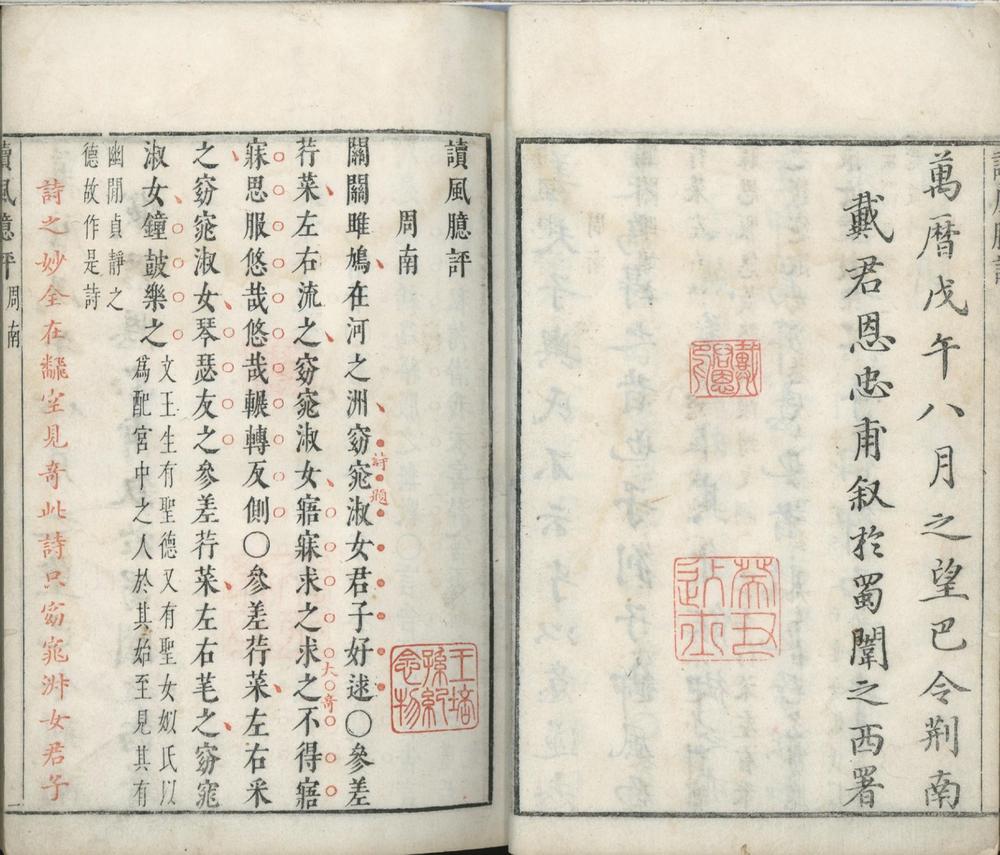 萬曆戊午八月之望巴令荆南
戴君恩忠甫叙於蜀闈之西署
戴君恩印
讀風臆評
周南
關關雎鳩在河之洲窈窕淑女君子好逑○參差
詩題
荇菜左右流之窈窕淑女寤寐求之求之不得寤
大奇
寐思服悠哉悠哉輾轉反側○參差荇菜左右采
之窈窕淑女琴瑟友之參差荇菜左右芼之窈窕
淑女鐘鼓樂之
文王生有聖德又有聖女姒氏以
爲配宮中之人於其始至見其有
幽閒貞靜之
德故作是詩
詩之妙全在翻空見奇此詩只窈窕淑女君子
讀風臆評
周南
一
王培孫紀念物